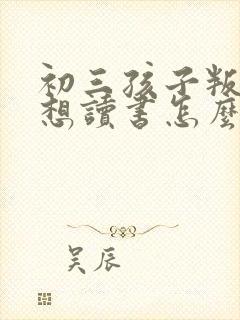 初三孩子叛
想讀書怎麼
吴辰